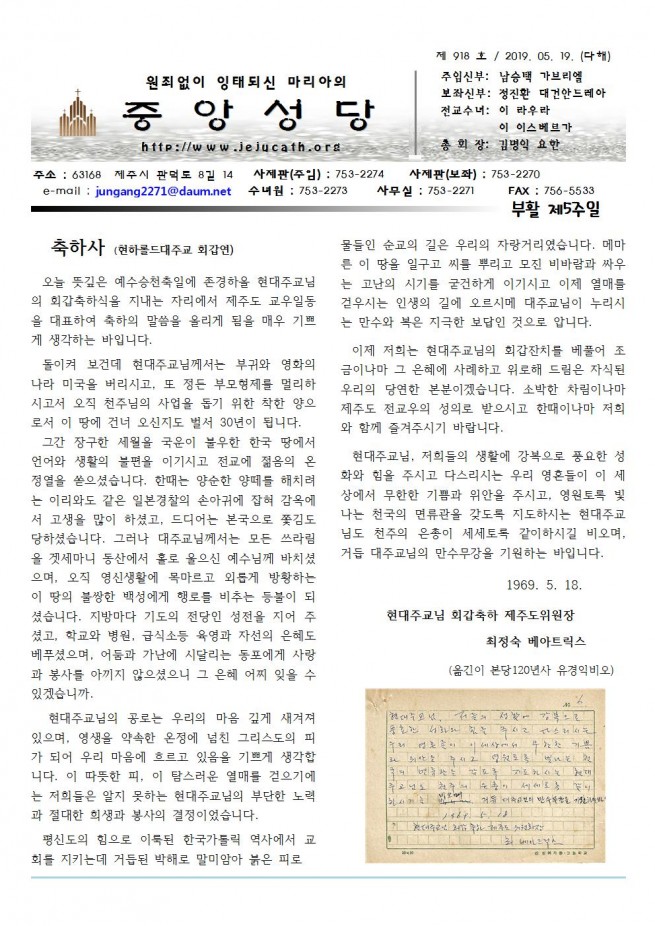 제 918 호 / 2019. 05. 19. (다해)
원죄없이 잉태되신 마리아의
중 앙 성 당
http://www.jejucath.org
주임신부: 남승택 가브리엘
보좌신부: 정진환 대건안드레아
전교수녀: 이 라우라
이 이스베르가
총 회 장: 김명익 요한
주소 : 63168 제주시 관덕로 8길 14 사제관(주임) : 753-2274 사제관(보좌) : 753-2270
e-mail : jungang2271@daum.net 수녀원 : 753-2273 사무실 : 753-2271 FAX : 756-5533
부활 제5주일
축하사 (현하롤드대주교 회갑연)
오늘 뜻깊은 예수승천축일에 존경하올 현대주교님
의 회갑축하식을 지내는 자리에서 제주도 교우일동
을 대표하여 축하의 말씀을 올리게 됨을 매우 기쁘
게 생각하는 바입니다.
돌이켜 보건데 현대주교님께서는 부귀와 영화의
나라 미국을 버리시고, 또 정든 부모형제를 멀리하
시고서 오직 천주님의 사업을 돕기 위한 착한 양으
로서 이 땅에 건너 오신지도 벌서 30년이 됩니다.
그간 장구한 세월을 국운이 불우한 한국 땅에서
언어와 생활의 불편을 이기시고 전교에 젊음의 온
정열을 쏟으셨습니다. 한때는 양순한 양떼를 해치려
는 이리와도 같은 일본경찰의 손아귀에 잡혀 감옥에
서 고생을 많이 하셨고, 드디어는 본국으로 쫓김도
당하셨습니다. 그러나 대주교님께서는 모든 쓰라림
을 겟세마니 동산에서 홀로 울으신 예수님께 바치셨
으며, 오직 영신생활에 목마르고 외롭게 방황하는
이 땅의 불쌍한 백성에게 행로를 비추는 등불이 되
셨습니다. 지방마다 기도의 전당인 성전을 지어 주
셨고, 학교와 병원, 급식소등 육영과 자선의 은혜도
베푸셨으며, 어둠과 가난에 시달리는 동포에게 사랑
과 봉사를 아끼지 않으셨으니 그 은혜 어찌 잊을 수
있겠습니까.
현대주교님의 공로는 우리의 마음 깊게 새겨져
있으며, 영생을 약속한 온정에 넘친 그리스도의 피
가 되어 우리 마음에 흐르고 있음을 기쁘게 생각합
니다. 이 따뜻한 피, 이 탐스러운 열매를 걷으기에
는 저희들은 알지 못하는 현대주교님의 부단한 노력
과 절대한 희생과 봉사의 결정이었습니다.
평신도의 힘으로 이룩된 한국가톨릭 역사에서 교
회를 지키는데 거듭된 박해로 말미암아 붉은 피로
물들인 순교의 길은 우리의 자랑거리였습니다. 메마
른 이 땅을 일구고 씨를 뿌리고 모진 비바람과 싸우
는 고난의 시기를 굳건하게 이기시고 이제 열매를
걷우시는 인생의 길에 오르시메 대주교님이 누리시
는 만수와 복은 지극한 보답인 것으로 압니다.
이제 저희는 현대주교님의 회갑잔치를 베풀어 조
금이나마 그 은혜에 사례하고 위로해 드림은 자식된
우리의 당연한 본분이겠습니다. 소박한 차림이나마
제주도 전교우의 성의로 받으시고 한때이나마 저희
와 함께 즐겨주시기 바랍니다.
현대주교님, 저희들의 생활에 강복으로 풍요한 성
화와 힘을 주시고 다스리시는 우리 영혼들이 이 세
상에서 무한한 기쁨과 위안을 주시고, 영원토록 빛
나는 천국의 면류관을 갖도록 지도하시는 현대주교
님도 천주의 은총이 세세토록 같이하시길 비오며,
거듭 대주교님의 만수무강을 기원하는 바입니다.
1969. 5. 18.
현대주교님 회갑축하 제주도위원장
최정숙 베아트릭스
(옮긴이 본당120년사 유경익비오)